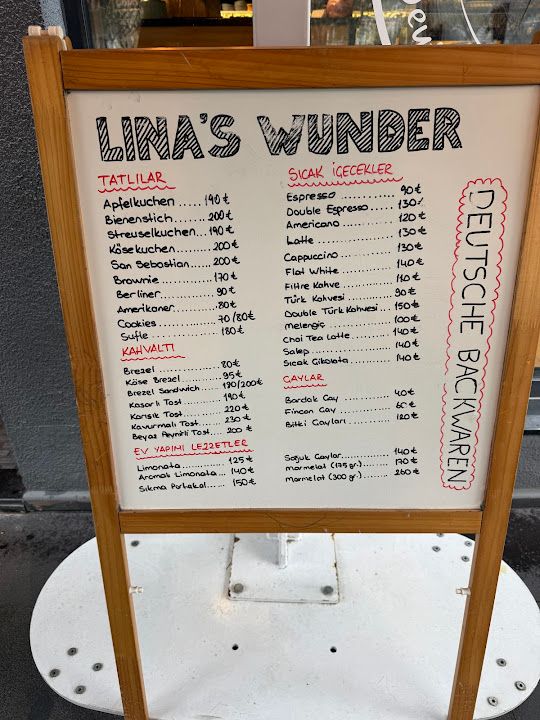 LINA'S WUNDER
TATLILAR
Apfelkuchen ..... 190 ₺
Bienenstich ........ 200 ₺
Streuselkuchen... 190 ₺
Käsekuchen ........ 200 ₺
San Sebastian ..... 200 ₺
Brownie ............. 170 ₺
Berliner ............. 90 ₺
Amerikaner ......... 80 ₺
Cookies ............. 70/80 ₺
Sufle ................ 180 ₺
KAHVALTI
Brezel ................ 80 ₺
Käse Brezel ......... 95 ₺
Brezel Sandwich .... 190/200 ₺
Kaşarlı Tost ......... 190 ₺
Karışık Tost ......... 220 ₺
Kavurmalı Tost ..... 230 ₺
Beyaz Peynirli Tost.... 200 ₺
EV YAPIMI LEZZETLER
Limonata ............... 125 ₺
Aromalı Limonata .... 140 ₺
Sıkma Portakal ....... 150 ₺
SICAK İÇECEKLER
Espresso ............... 90 ₺
Double Espresso ....... 130
Americano ............. 120 ₺
Latte ................... 130 ₺
Cappuccino ............ 130 ₺
Flat White ............. 140 ₺
Filtre Kahve ........... 110 ₺
Türk Kahvesi .......... 90 ₺
Double Türk Kahvesi ... 150 ₺
Melengiç ............... 100 ₺
Chai Tea Latte ........ 140 ₺
Salep ................... 140 ₺
Sıcak Çikolata ......... 140 ₺
ÇAYLAR
Bardak Çay ............ 40 ₺
Fincan Çay ............. 60 ₺
Bitki Çayları ........... 120 ₺
Soğuk Çaylar .......... 140 ₺
Marmelat (175 gr.) ..... 170 ₺
Marmelat (300 gr.) ..... 260 ₺
DEUTSCHE BACKWAREN